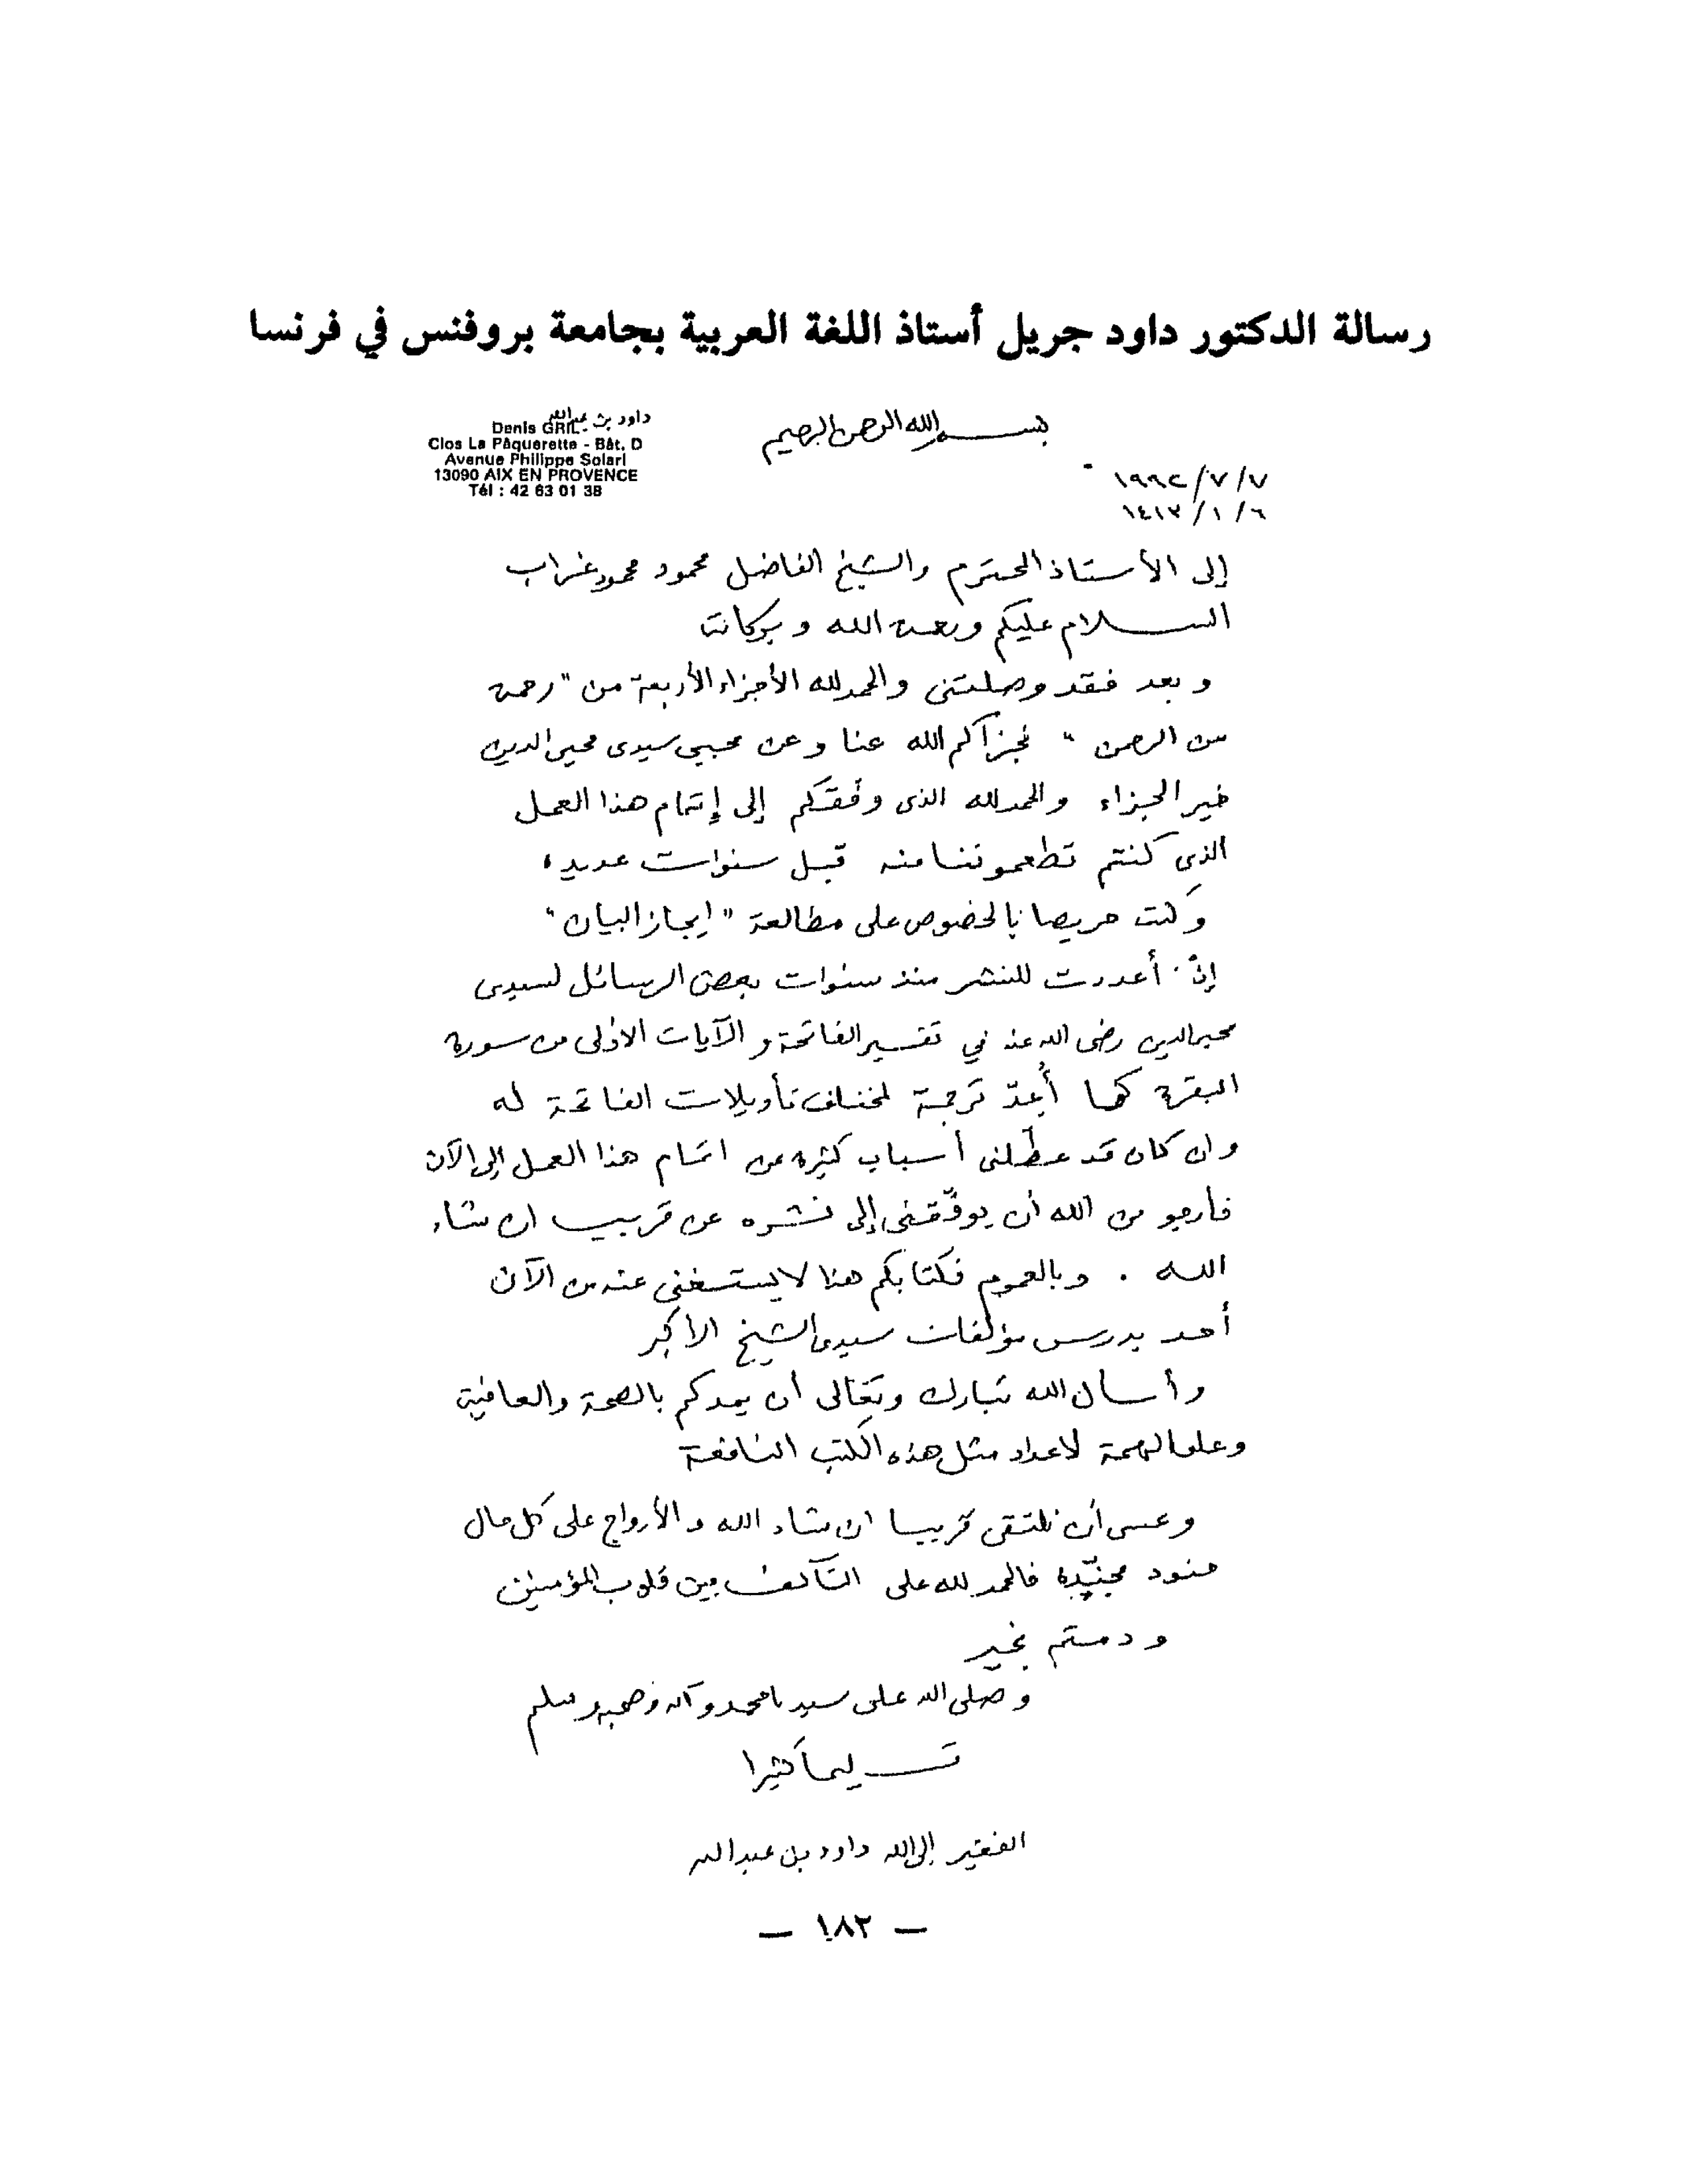 رسالة الدكتور داود جريل أستاذ اللغة العربية بجامعة بروفنس في فرنسا
داود بن عبدالله
Denis GRIL
Clos La Pâquerette - Bât. D
Avenue Philippe Solari
13090 AIX EN PROVENCE
Tél : 42 63 01 38
بسم الله الرحمن الرحيم
٧/٧/١٩٩٢
٦/١/١٤١٣
إلى الأستاذ المحترم والشيخ الفاضل محمود محمود غراب
السلام عليكم ورحمة الله وبركاته
وبعد فقد وصلتني والحمد لله الأجزاء الأربعة من "رحمة
من الرحمن" فجزاكم الله عنا وعن محبي سيدى محيى الدين
خير الجزاء والحمد لله الذى وفّقكم إلى إتمام هذا العمل
الذى كنتم تطعموننا منه قبل سنوات عديدة
وكنت حريصا بالخصوص على مطالعة "إيجاز البيان"
أعددت للنشر منذ سنوات بعض الرسائل لسيدى
محيى الدين رضى الله عنه في تفسير الفاتحة والآيات الأولى من سورة
البقرة كما أُعِدّ ترجمة لمختلف تأويلات الفاتحة له
وان كان قد عطّلنى أسباب كثيرة عن اتمام هذا العمل إلى الآن
فأرجو من الله أن يوفّقنى إلى نشره عن قريب ان شاء
الله . وبالعموم فكتابكم هذا لا يستغنى عنه من الآن
أحد يدرس مؤلفات سيدى الشيخ الأكبر
وأسأل الله تبارك وتعالى أن يمدكم بالصحة والعافية
وعلو الهمة لاعداد مثل هذه الكتب النافعة
وعسى أن نلتقى قريبا ان شاء الله والأرواح على كل حال
جنود مجنّدة فالحمد لله على التآلف بين قلوب المؤمنين
ودمتم بخير
وصلى الله على سيدنا محمد وآله وصحبه وسلم
تسليما كثيرا
الفقير إلى الله داود بن عبد الله
— ١٨٢ —